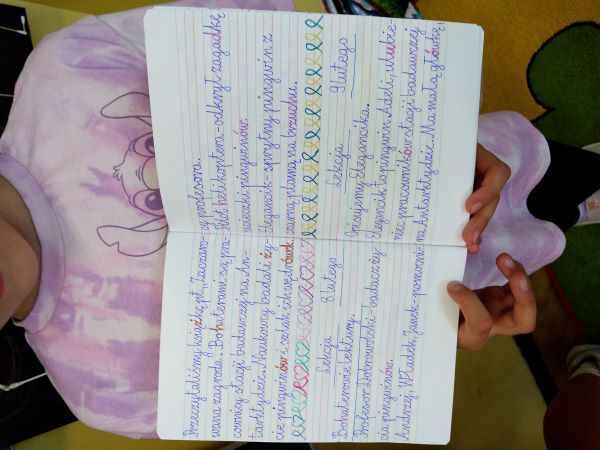 Przeczytaliśmy książkę pt. „Zaczaro-
wana zagroda". Bohaterami są pra-
cownicy stacji badawczej na An-
tarktydzie. Naukowcy badali ży-
cie pingwinów i szlak ich wędrówek.
Lekcja
8 lutego
Bohaterowie lektury.
Profesor Dobrowolski - badacz ży-
cia pingwinów.
Andrzej, Władek, Janek - pomocni-
cy profesora.
Pilot helikoptera - odkrył zagadkę
ucieczki pingwinów.
Elegancik - sprytny pingwin z
czarną plamą na brzuchu.
Lekcja
9 lutego
Opisujemy Elegancika.
Elegancik to pingwin Adeli, ulubie-
niec pracowników stacji badawczej
na Antarktydzie. Ma małą główkę,